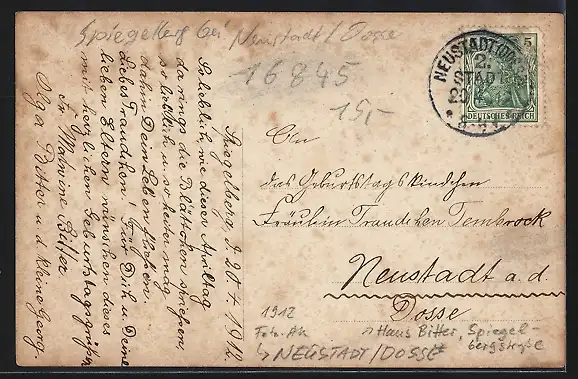 Spiegelberg bei Neustadt / Dosse
16845
15,-
NEUSTADT (DOSSE)
2.
STADT
5
DEUTSCHES REICH
Spiegelberg, d. 20. 4. 1912.
So lieblich wie dieser Apriltag
da rings die Blättchen spriessen,
so lieblich u. so heiter mag
dahin Dein Leben fliessen.
Liebes Traudchen! Für Dich u. Deine
lieben Eltern wünschen dieses
mit herzlichen Geburtstagsgrüßen
Fr. Bitter
Olga Bitter u. d. kleine Georg.
An
das Geburtstagskindchen
Fräulein Traudchen Tembrock
Neustadt a. d.
Dosse
1912
Foto. Ak
Haus Bitter, Spiegel-
bergstraße
NEUSTADT/DOSSE